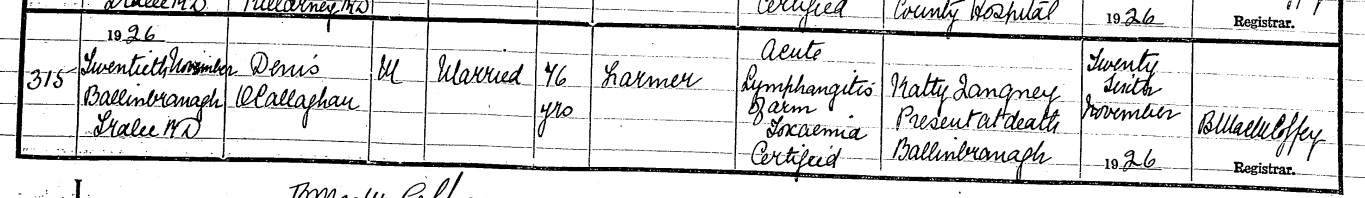 Tralee RD
Killarney RD
Certified
County Hospital
1926
Registrar.
315
1926
Twentieth November
Ballinbranagh
Tralee RD
Denis
O'Callaghan
M
Married
46
yrs
Farmer
Acute
Lymphangitis
of arm
Toxaemia
Certified
Natty Tangney
Present at death
Ballinbranagh
Twenty
Sixth
November
1926
Registrar.